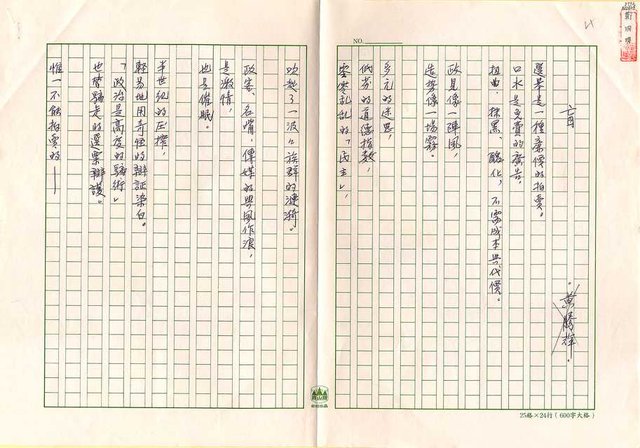 NO.
盲
黃勝輝
選舉是一種廉價的拍賣。
口水是免費的廣告，
扭曲、抹黑、醜化，不需成本與代價。
政見像一陣風，
造勢像一場霧。
多元的迷思，
低劣的道德指數，
零零亂亂的「民主」，
吹皺了一波波族群的漣漪。
政客、名嘴、傳媒的興風作浪，
是激情，
也是催眠。
半世紀的圧搾，
輕易地用奇怪的辯証染白。
「政治是高度的騙術」
也替騙走的選票辯護。
惟一不能拍賣的——
25格×24行（600字大格）